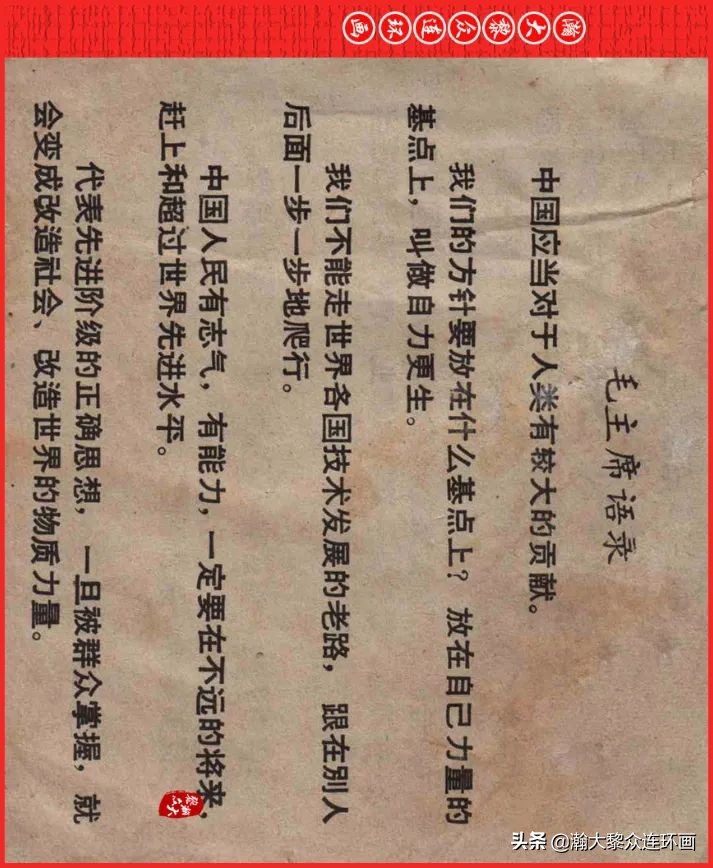 瀚大黎众连环画
毛主席语录
中国应当对于人类有较大的贡献。
我们的方针要放在什么基点上？放在自己力量的
基点上，叫做自力更生。
我们不能走世界各国技术发展的老路，跟在别人
后面一步一步地爬行。
中国人民有志气，有能力，一定要在不远的将来，
赶上和超过世界先进水平。
代表先进阶级的正确思想，一旦被群众掌握，就
会变成改造社会、改造世界的物质力量。
瀚大黎众
头条 @瀚大黎众连环画